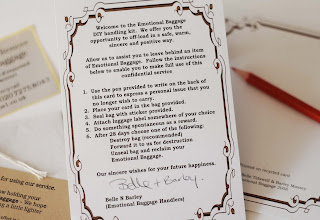 Welcome to the Emotional Baggage
DIY handling kit. We offer you the
opportunity to off-load in a safe, warm,
sincere and positive way.
Allow us to assist you to leave behind an item
of Emotional Baggage. Follow the instructions
below to enable you to make full use of this
confidential service
1. Use the pen provided to write on the back of
this card to express a personal issue that you
no longer wish to carry.
2. Place your card in the bag provided.
3. Seal bag with sticker provided.
4. Attach luggage label somewhere of your choice
5. Do something spontaneous as a reward.
6. After 28 days choose one of the following:
Destroy bag (recommended)
Forward it to us for destruction
Unseal bag and reclaim your
Emotional Baggage.
Our sincere wishes for your future happiness.
Belle + Barley
Belle N Barley
(Emotional Baggage Handlers)
for using our service.
holding your
Baggage. We hope
a little lighter